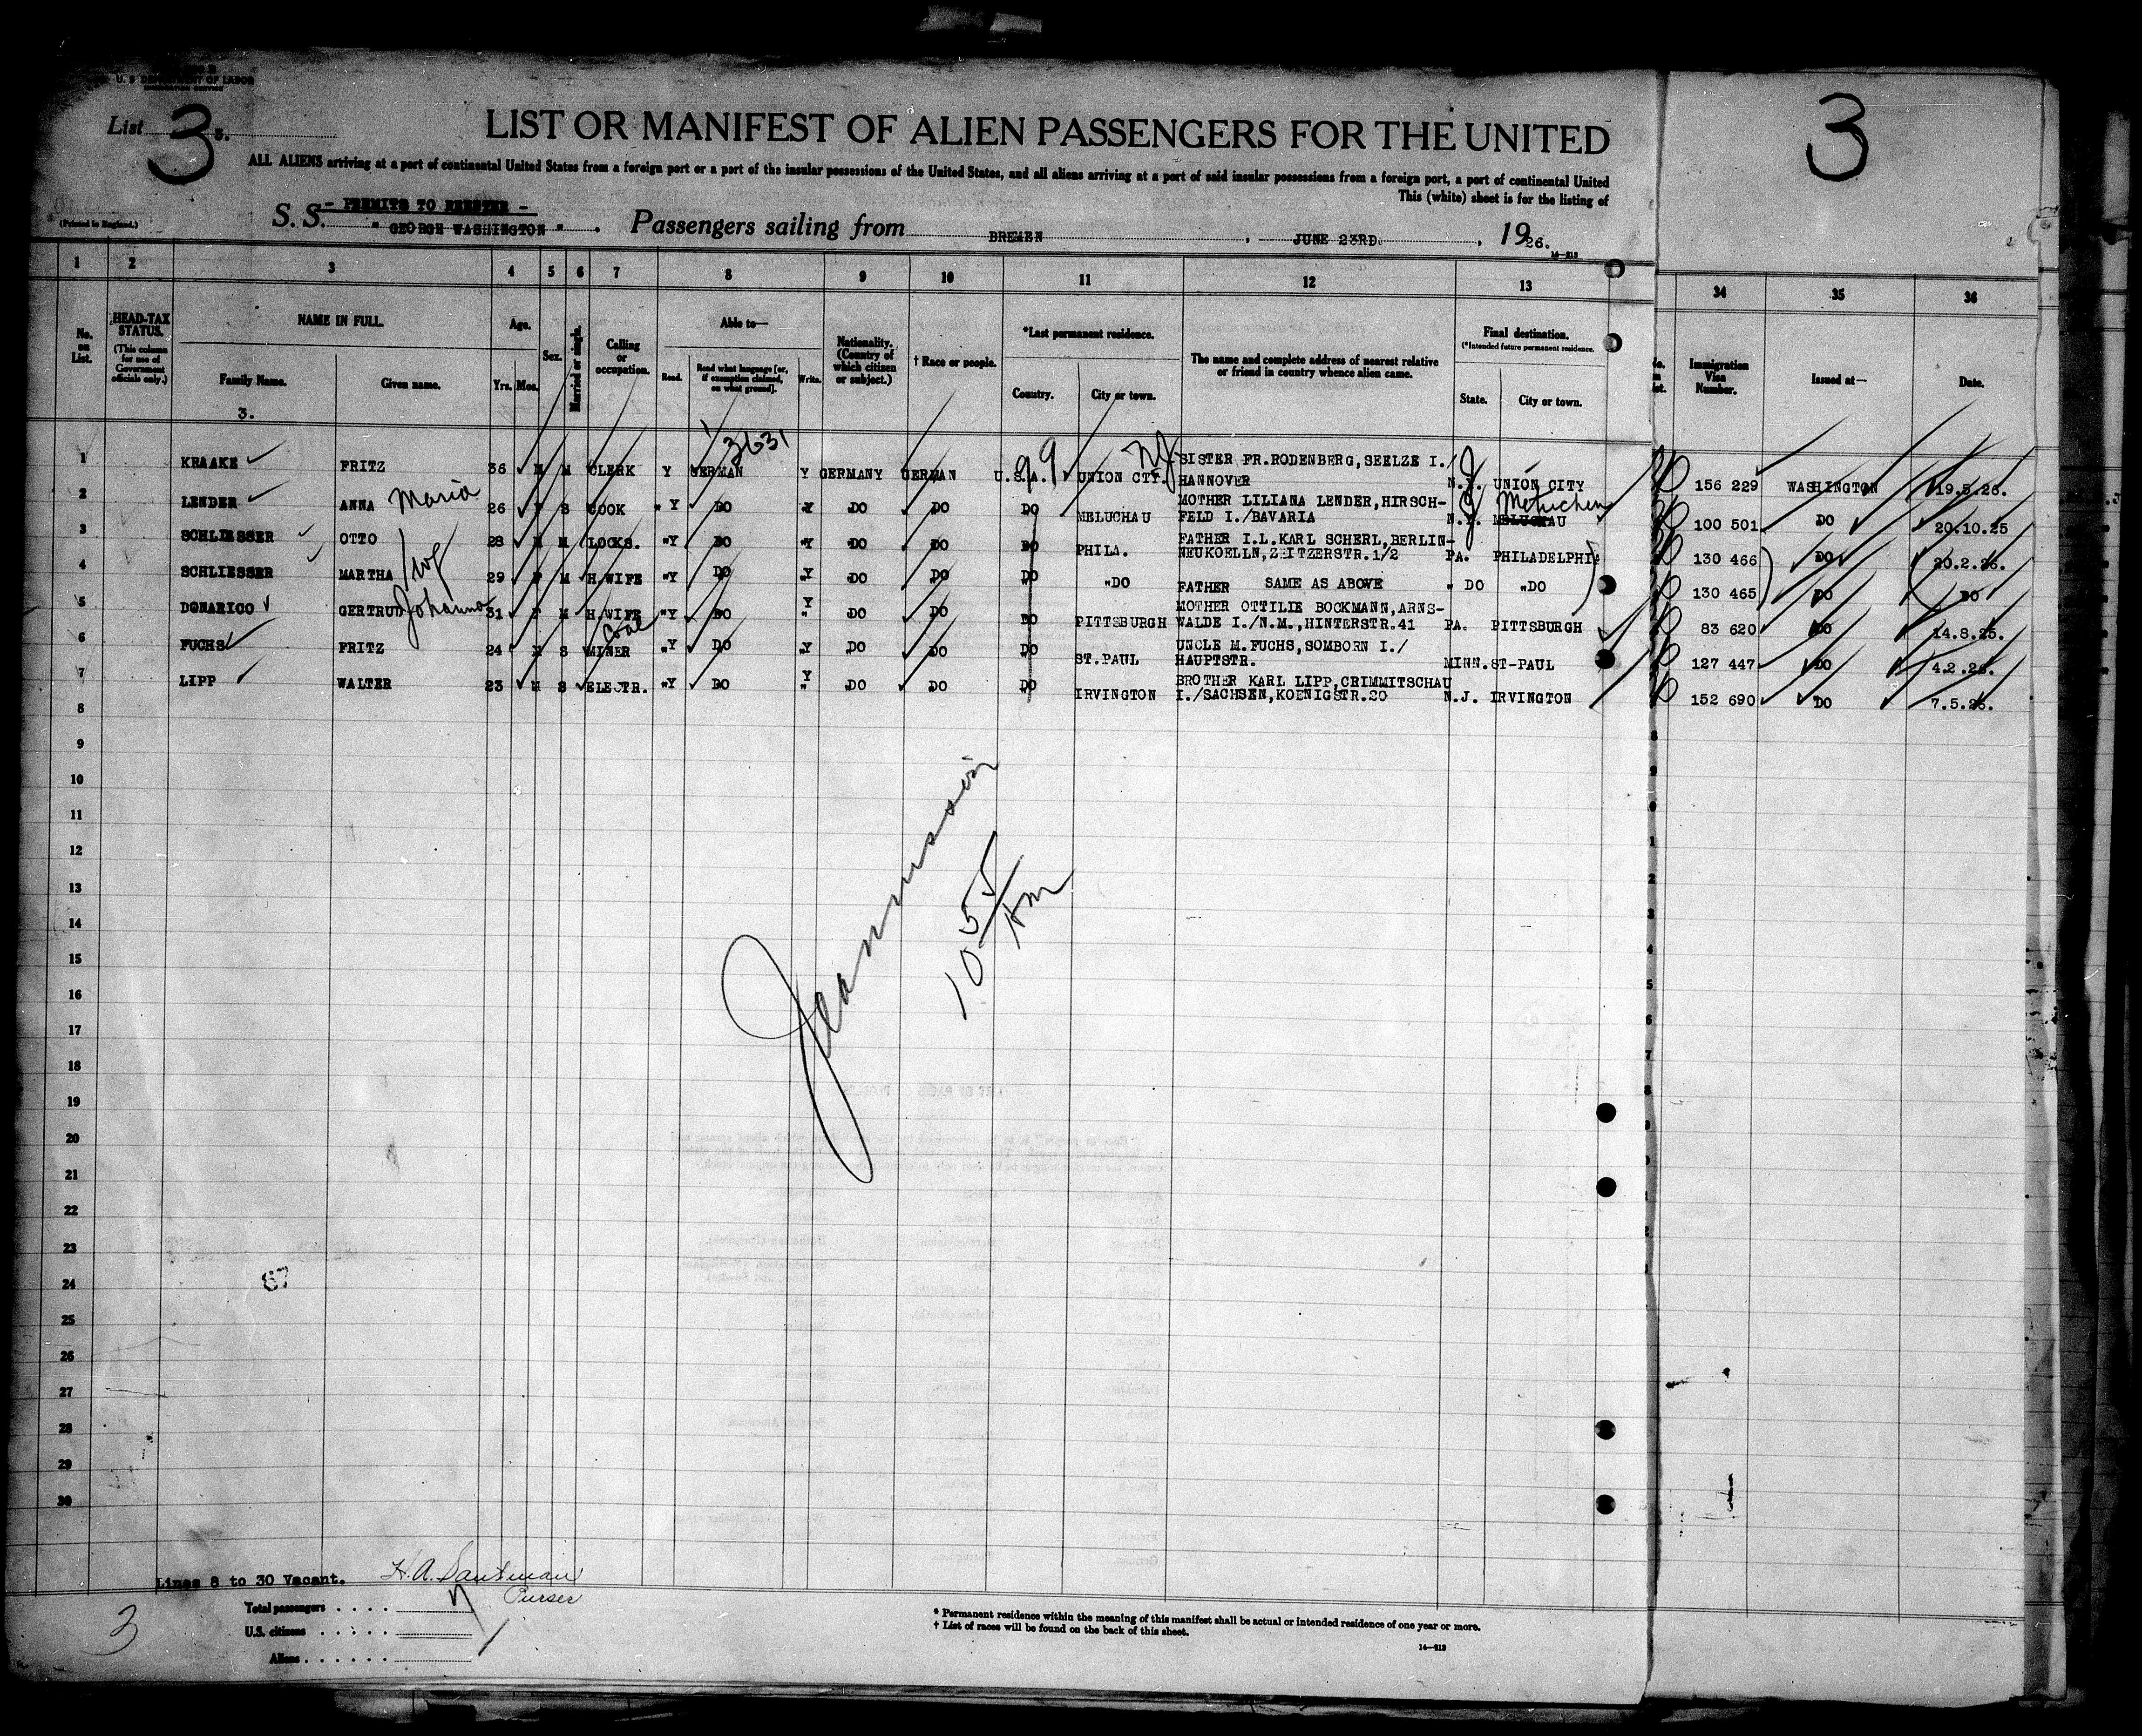 U. S. DEPARTMENT OF LABOR
IMMIGRATION SERVICE
List 3 3.
3
LIST OR MANIFEST OF ALIEN PASSENGERS FOR THE UNITED
ALL ALIENS arriving at a port of continental United States from a foreign port or a port of the insular possessions of the United States, and all aliens arriving at a port of said insular possessions from a foreign port, a port of continental United
This (white) sheet is for the listing of
(Printed in England.)
- PERMITS TO REENTER -
S. S. " GEORGE WASHINGTON " . Passengers sailing from BREMEN , JUNE 23RD. , 1926.
14—212
1 2 3 4 5 6 7 8 9 10 11 12 13 34 35 36
No. on List.
HEAD-TAX STATUS. (This column for use of Government officials only.)
NAME IN FULL.
Family Name.
Given name.
3.
Age.
Yrs. Mos.
Sex.
Married or single.
Calling or occupation.
Able to—
Read.
Read what language [or, if exemption claimed, on what ground].
Write.
Nationality. (Country of which citizen or subject.)
† Race or people.
*Last permanent residence.
Country.
City or town.
The name and complete address of nearest relative or friend in country whence alien came.
Final destination.
(*Intended future permanent residence.
State.
City or town.
Immigration Visa Number.
Issued at—
Date.
3631
1 KRAAKE FRITZ 36 M M CLERK Y GERMAN Y GERMANY GERMAN U.S.A. UNION CTY. NJ SISTER FR.RODENBERG,SEELZE I./ HANNOVER N.Y. J UNION CITY 156 229 WASHINGTON 19.5.26.
2 LENDER ANNA Maria 26 F S COOK "Y DO "Y DO DO DO MELUCHAU MOTHER LILIANA LENDER,HIRSCH- FELD I./BAVARIA N.Y. J MELUCHAU Metuchen 100 501 DO 20.10.25
3 SCHLIESSER OTTO 28 M M LOCKS. "Y DO "Y DO DO DO PHILA. FATHER I.L.KARL SCHERL,BERLIN- NEUKOELLN,ZEITZERSTR.1/2 PA. PHILADELPHIA 130 466 DO 20.2.26.
4 SCHLIESSER MARTHA /wf 29 F M H.WIFE "Y DO "Y DO DO DO "DO FATHER SAME AS ABOVE " DO "DO 130 465 DO DO
5 DONARICO GERTRUD Johanna 31 F M H.WIFE "Y DO "Y DO DO DO PITTSBURGH MOTHER OTTILIE BOCKMANN,ARNS- WALDE I./N.M.,HINTERSTR.41 PA. PITTSBURGH 83 620 DO 14.8.25.
6 FUCHS FRITZ 24 M S Coal MINER "Y DO "Y DO DO DO ST.PAUL UNCLE M.FUCHS,SOMBORN I./ HAUPTSTR. MINN. ST-PAUL 127 447 DO 4.2.26.
7 LIPP WALTER 23 M S ELECTR. "Y DO "Y DO DO DO IRVINGTON BROTHER KARL LIPP,CRIMMITSCHAU I./SACHSEN,KOENIGSTR.20 N.J. IRVINGTON 152 690 DO 7.5.26.
8
9
10
11
12
13
14
15
16
17
18
19
20
21
22
23
24
25
26
27
28
29
30
10 55/Am
87
Lines 8 to 30 Vacant.
Purser
Total passengers . . . . 7
U.S. citizens . . . . .
Aliens . . . . . .
3
* Permanent residence within the meaning of this manifest shall be actual or intended residence of one year or more.
† List of races will be found on the back of this sheet.
14—212